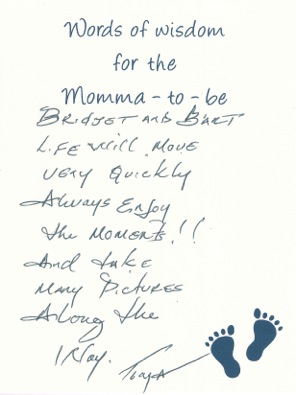 Words of wisdom
for the
Momma-to-be
BRIDJET AND BURT
LIFE WILL MOVE
VERY QUICKLY
ALWAYS ENJOY
the MOMENTS!!
AND take
MANY PICTURES
ALONG the
WAY.